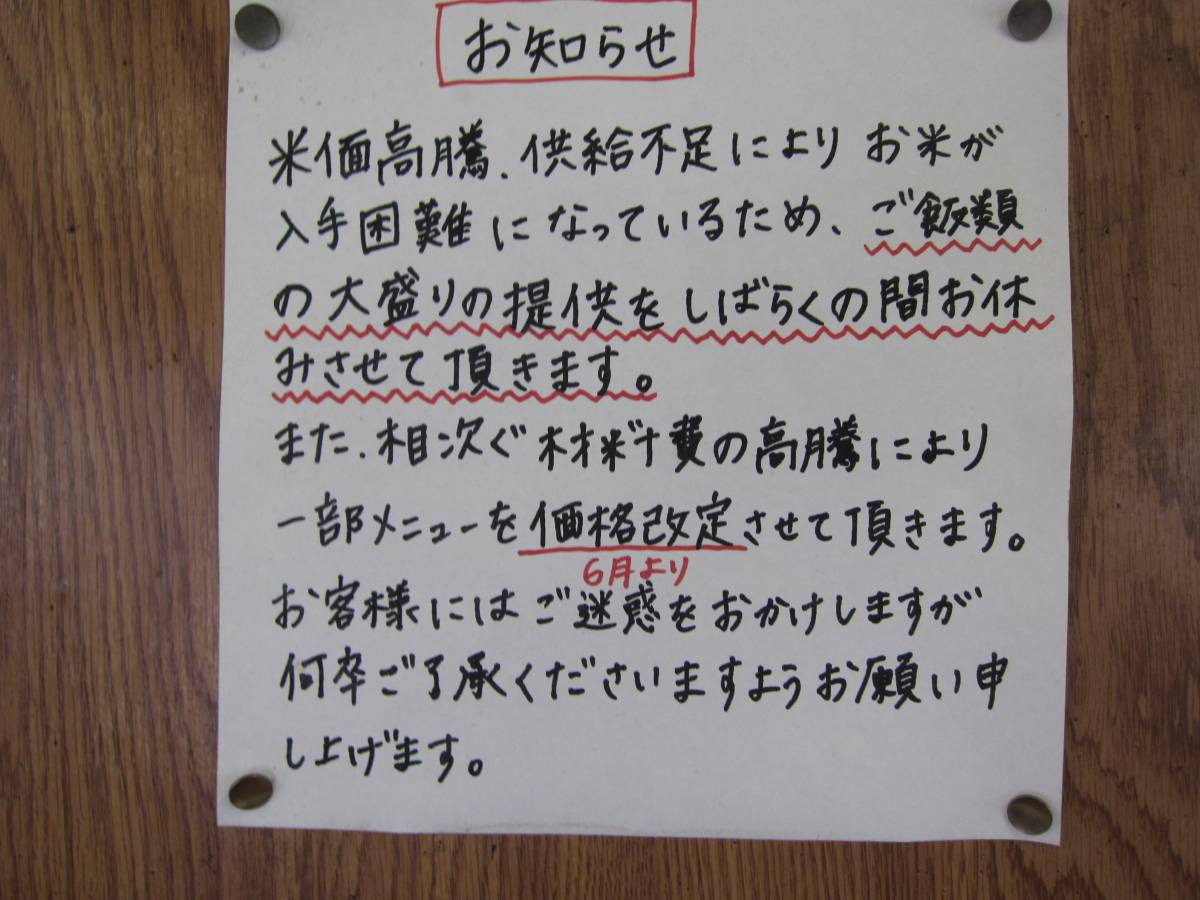 お知らせ
米価高騰、供給不足により お米が
入手困難になっているため、ご飯類
の大盛りの提供をしばらくの間お休
みさせて頂きます。
また、相次ぐ材料費の高騰により
一部メニューを価格改定させて頂きます。
6月より
お客様にはご迷惑をおかけしますが
何卒ご了承くださいますようお願い申
し上げます。